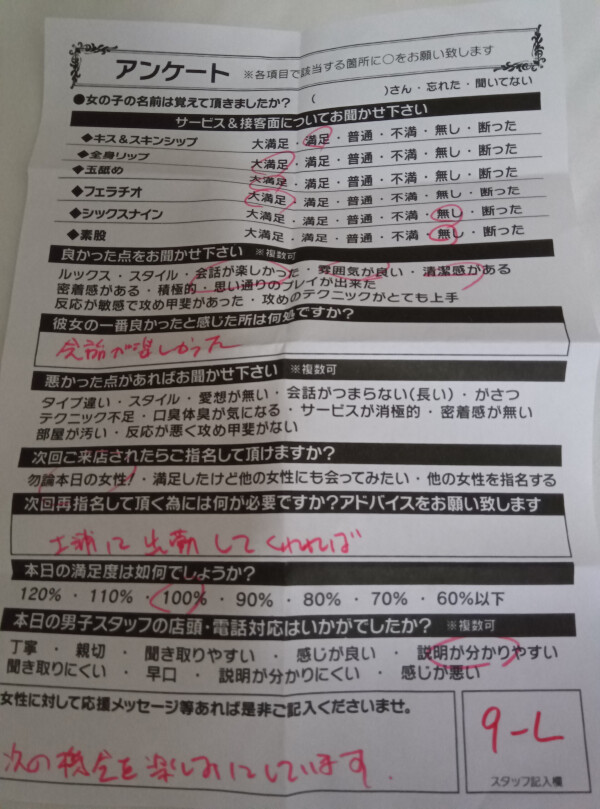 アンケート ※各項目で該当する箇所に○をお願い致します
●女の子の名前は覚えて頂きましたか? ( )さん・忘れた・聞いてない
サービス&接客面についてお聞かせ下さい
◆キス&スキンシップ 大満足・満足・普通・不満・無し・断った
◆全身リップ 大満足・満足・普通・不満・無し・断った
◆玉舐め 大満足・満足・普通・不満・無し・断った
◆フェラチオ 大満足・満足・普通・不満・無し・断った
◆シックスナイン 大満足・満足・普通・不満・無し・断った
◆素股 大満足・満足・普通・不満・無し・断った
良かった点をお聞かせ下さい ※複数可
ルックス・スタイル・会話が楽しかった・雰囲気が良い・清潔感がある
密着感がある・積極的・思い通りのプレイが出来た
反応が敏感で攻め甲斐があった・攻めのテクニックがとても上手
彼女の一番良かったと感じた所は何処ですか?
会話が楽しかった
悪かった点があればお聞かせ下さい ※複数可
タイプ違い・スタイル・愛想が無い・会話がつまらない(長い)・がさつ
テクニック不足・口臭体臭が気になる・サービスが消極的・密着感が無い
部屋が汚い・反応が悪く攻め甲斐がない
次回ご来店されたらご指名して頂けますか?
勿論本日の女性!・満足したけど他の女性にも会ってみたい・他の女性を指名する
次回再指名して頂く為には何が必要ですか?アドバイスをお願い致します
土浦に出勤してくれれば
本日の満足度は如何でしょうか?
120%・110%・100%・90%・80%・70%・60%以下
本日の男子スタッフの店頭・電話対応はいかがでしたか? ※複数可
丁寧・親切・聞き取りやすい・感じが良い・説明が分かりやすい
聞き取りにくい・早口・説明が分かりにくい・感じが悪い
女性に対して応援メッセージ等あれば是非ご記入くださいませ。
次の機会を楽しみにしています.
9-L
スタッフ記入欄